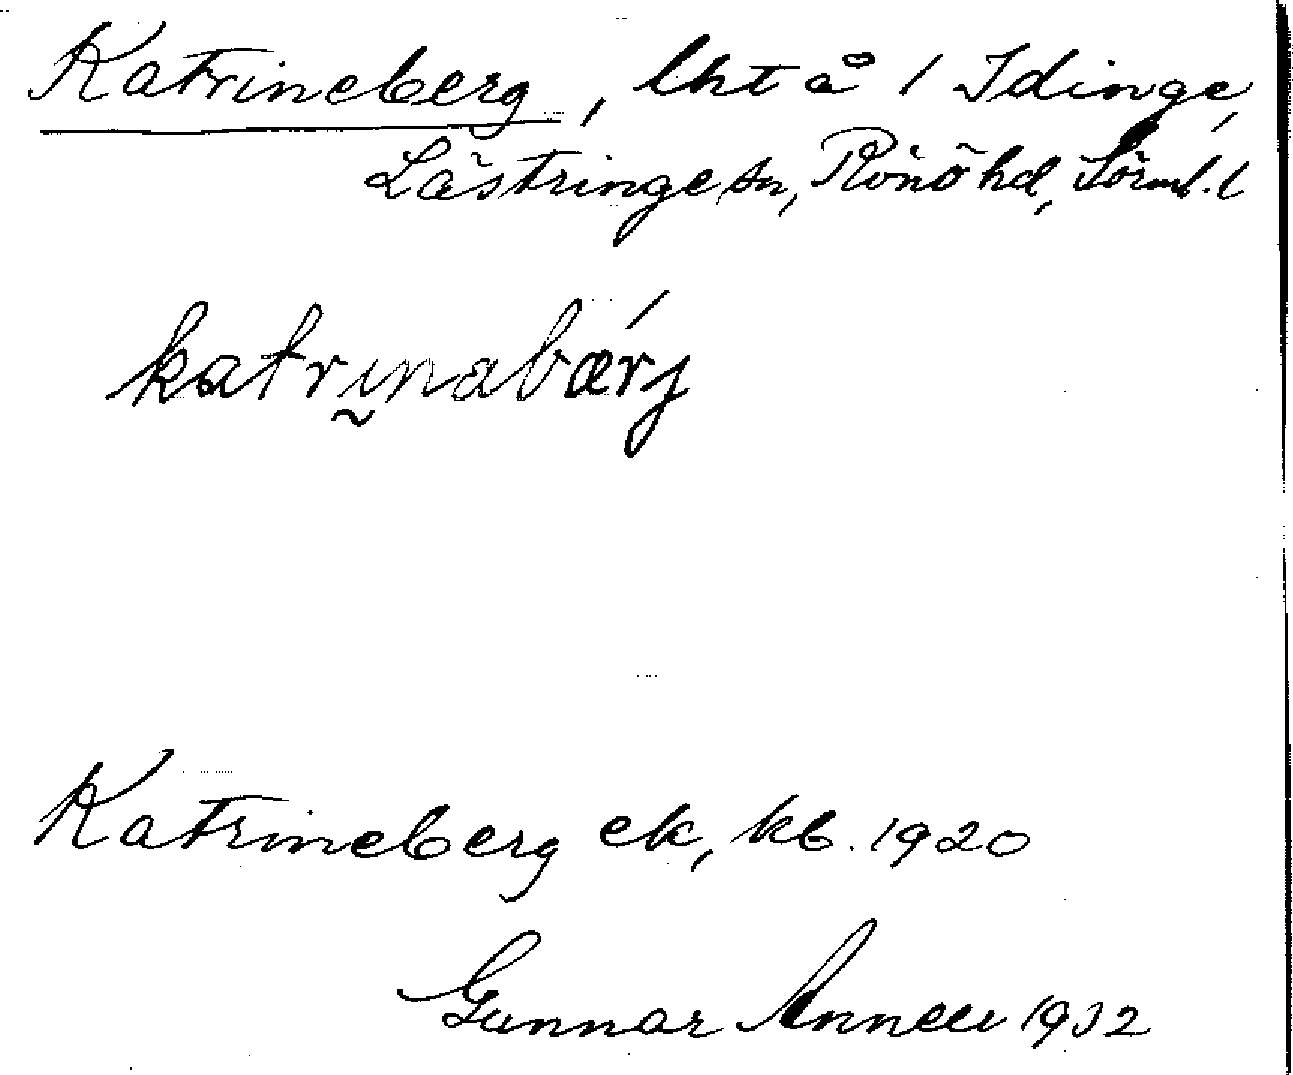 Katrineberg, lht å 1 Idinge,
Lästringe sn, Rönö hd, Sörml. l
katrinabärj
Katrineberg ek, kb. 1920
Gunnar Annell 1932